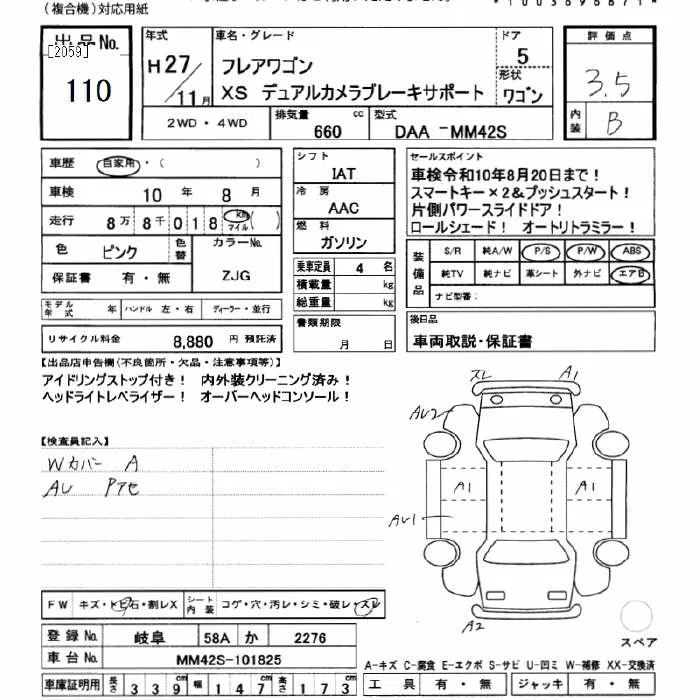 (複合機)対応用紙
出品No.
[2059]
110
年式
H27/11月
車名・グレード
フレアワゴン
XS デュアルカメラブレーキサポート
ドア
5
形状
ワゴン
評価点
3.5
内装
B
2WD・4WD
排気量 660 cc
型式 DAA-MM42S
車歴 自家用・( )
車検 10年 8月
走行 8万8千018 km マイル ( )
色 ピンク 色替 カラーNo. ZJG
保証書 有・無
モデル年式 年 ハンドル 左・右 ディーラー・並行
リサイクル料金 8,880 円 預託済
シフト
IAT
冷房
AAC
燃料
ガソリン
乗車定員 4 名
積載量 kg
総重量 kg
書類期限
月 日
セールスポイント
車検令和10年8月20日まで!
スマートキー×2&プッシュスタート!
片側パワースライドドア!
ロールシェード! オートリトラミラー!
装備品
S/R 純A/W P/S P/W ABS
純TV 純ナビ 革シート 外ナビ エアB
ナビ型番:
後日品
車両取説・保証書
【出品店申告欄(不良箇所・欠品・注意事項等)】
アイドリングストップ付き! 内外装クリーニング済み!
ヘッドライトレベライザー! オーバーヘッドコンソール!
【検査員記入】
Wカバー A
AU Pアセ
スレ A1
AU2
A1 A1
AU1
A2
スペア
FW キズ・トビ石・割レX シート内装 コゲ・穴・汚レ・シミ・破レ・スレ
登録No. 岐阜 58A か 2276
車台No. MM42S-101825
車庫証明用 長さ 339cm 幅 147cm 高さ 173cm
A-キズ C-腐食 E-エクボ S-サビ U-凹ミ W-補修 XX-交換済
工具 有・無 ジャッキ 有・無